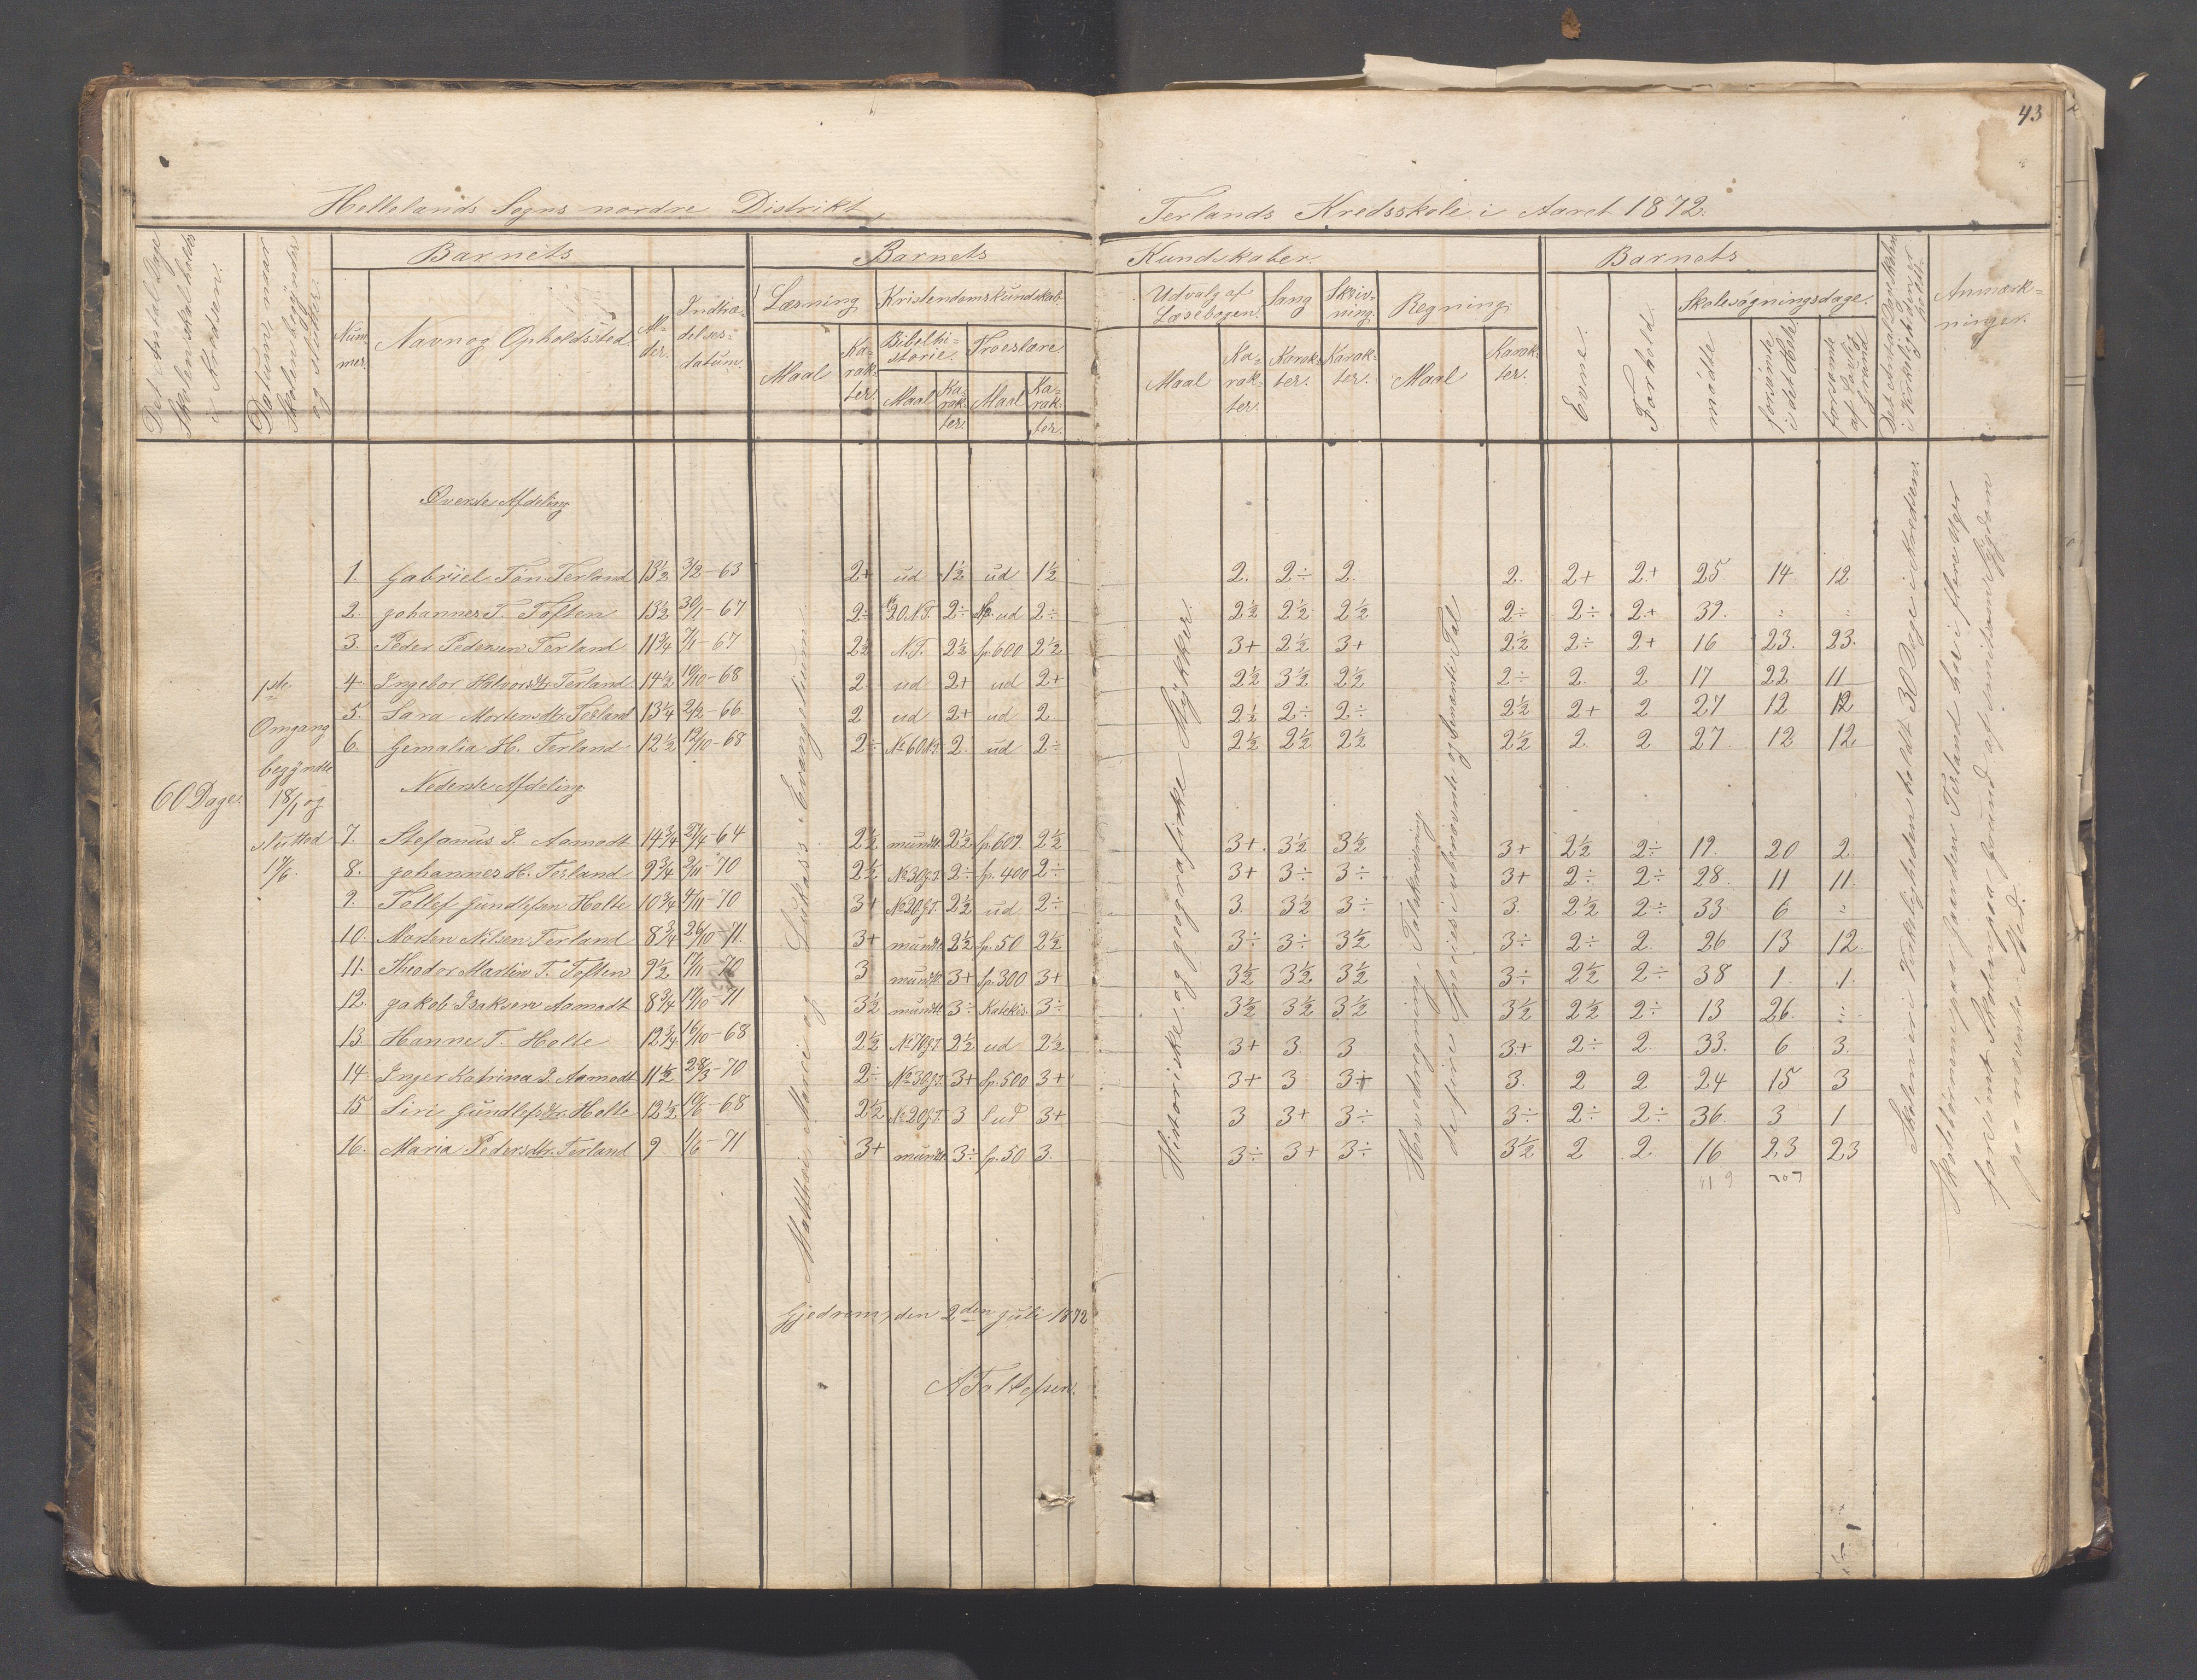 43
Hellelands Sogns nordre Distrikt,
Terlands Kredsskole i Aaret 1872.
Det Antal Dage Skolen skal holdes i Kredsen.
Datum, naar Skolen begynder og slutter.
Barnets
Num- mer.
Navn og Opholdssted
Al- der.
Indtræ- delses- datum.
Barnets
Læsning
Maal
Ka- rak- ter.
Kristendomskundskab
Bibelhi- storie.
Maal
Ka- rak- ter.
Troeslære
Maal
Ka- rak- ter.
Kundskaber.
Udvalg af Læsebogen.
Maal
Ka- rak- ter.
Sang
Karak- ter.
Skriv- ning.
Karak- ter.
Regning
Maal
Karak- ter.
Barnets
Evne.
Forhold.
Skolesøgningsdage.
mødte
forsømte i det Hele.
forsømte af lovlig Grund
Det Antal Dage Skolen i Virkeligheden er holdt.
Anmærk- ninger.
60 Dage.
1ste Omgang begyndte 18/1 og slutted 17/6.
Øverste Afdeling
1. Gabriel Tøn. Terland 13½ 3/2-63 2+ ud 1½ ud 1½ 2. 2÷ 2. 2. 2+ 2+ 25 14 12
2. Johannes T. Toften 13½ 30/1-67 2÷ 20 N.T. 2÷ ud 2÷ 2½ 2½ 2½ 2÷ 2÷ 2+ 39. " "
3. Peder Pedersen Terland 11¾ 7/1-67 2½ N.T. 2½ Sp. 600 2½ 3+ 2½ 3+ 2½ 2÷ 2+ 16 23. 23.
4. Ingebor Halvorsdtr. Terland 14½ 10/10-68 2 ud 2+ ud 2+ 2½ 3½ 2½ 2÷ 2. 2 17 22 11
5. Sara Mortensdtr. Terland 13¼ 2/2-66 2 ud 2+ ud 2 2½ 2÷ 2÷ 2½ 2+ 2 27 12 12
6. Gemalia H. Terland 12½ 12/10-68 2÷ No 60 N.T. 2. ud 2÷ 2½ 2½ 2½ 2½ 2. 2 27 12 12
Nederste Afdeling
7. Stefanus I. Aamodt 14¾ 27/4-64 2½ mundtl. 2½ Sp. 609 2½ 3+ 3½ 3½ 3+ 2½ 2÷ 19. 20 2.
8. Johannes H. Terland 9¾ 2/11-70 2½ No 30 g.T. 2÷ Sp. 400 2÷ 3+ 3÷ 3÷ 3+ 2÷ 2÷ 28. 11 11.
9. Tollef Gundlefsen Holte 10¾ 4/11-70 3+ No 20 g.T. 2½ ud 2÷ 3. 3½ 3÷ 3. 2½ 2÷ 33. 6 "
10. Morten Nilsen Terland 8¾ 26/10-71. 3+ mundtl. 2½ Sp. 50 2½ 3÷ 3÷ 3½ 3÷ 2÷ 2. 26 13 12.
11. Theodor Martin T. Toften 9½ 17/11-70 3 mundtl. 3+ Sp. 300 3+ 3½ 3½ 3½ 3÷ 2½ 2÷ 38 1. 1.
12. Jakob Isaksen Aamodt 8¾ 17/10-71 3½ mundtl. 3÷ Katekis. 3÷ 3½ 3½ 3½ 3½ 2½ 2÷ 13 26. "
13. Hanne T. Holte 12¾ 16/10-68 2½ No 70 g.T. 2½ ud 2½ 3+ 3. 3 3+ 2÷ 2. 33. 6 3.
14. Inger Katrina I. Aamodt 11½ 28/3-70 2÷ No 30 g.T. 3+ Sp. 500 3+ 3+ 3 3÷ 3. 2 2 24 15 3
15 Siri Gundlefsdtr. Holte 12½ 10/6-68 2½ No 20 g.T. 3 ud 3+ 3 3+ 3÷ 3÷ 2÷ 2÷ 36. 3 1
16. Maria Pedersdtr. Terland 9 1/6-71 3+ mundtl. 3÷ Sp. 50 3. 3÷ 3+ 3÷ 3½ 2 2. 16 23 23
207
Matthæi, Marci og Lukass Evangelium
Historiske og geografiske Stykker.
Hovedregning. Talskrivning
de fire Specier i ubenævnte og benævnte Tal
Skolen er i Virkeligheden holdt 30 Dage i Kredsen.
Skolebørnene paa Gaarden Terland har i flere Uger
forsømt Skolen paa Grund af smitsom Sygdom
paa nævnte Sted.
Gjedrem, den 2den Juli 1872
A Tollefsen.